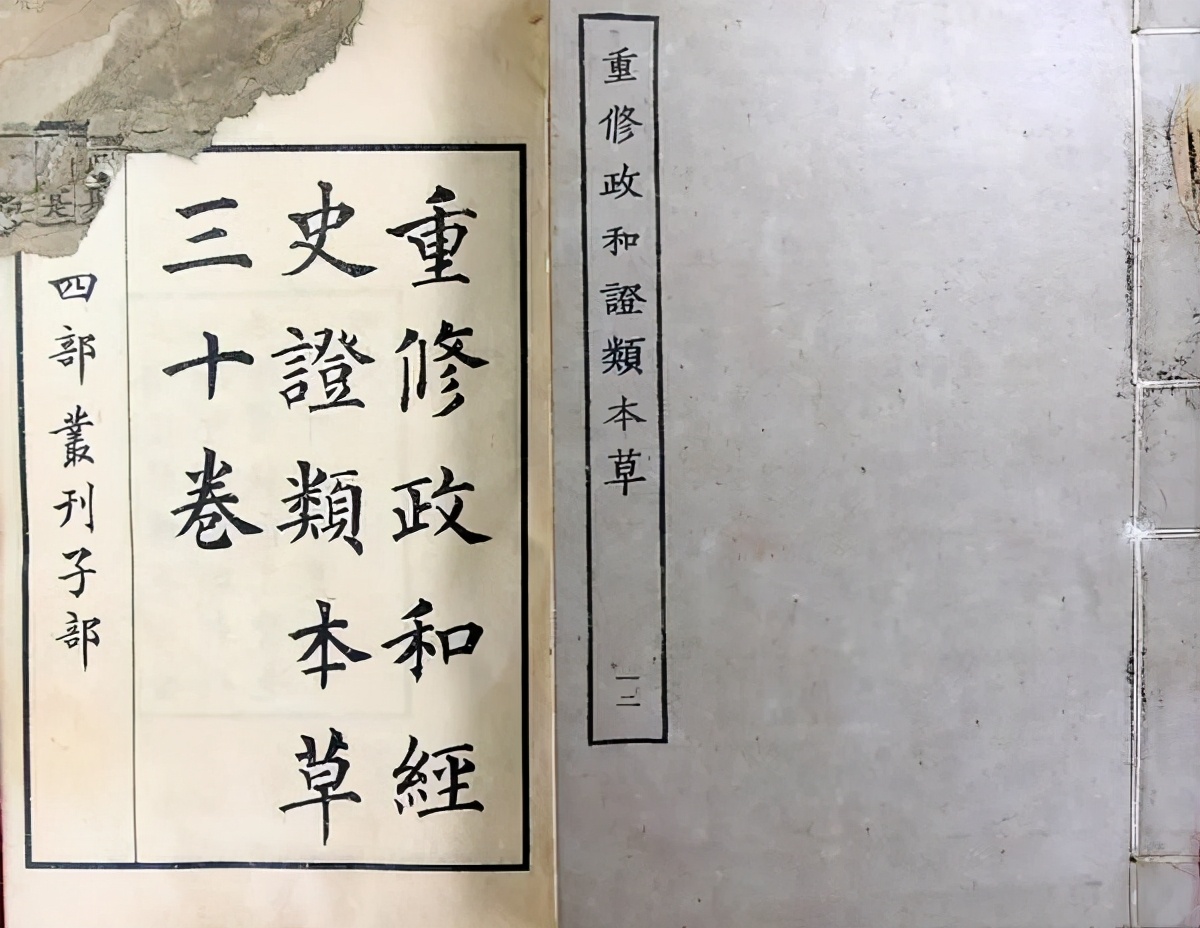 重修政和證類本草
一二
重修政和經
史證類本草
三十卷
四部叢刊子部